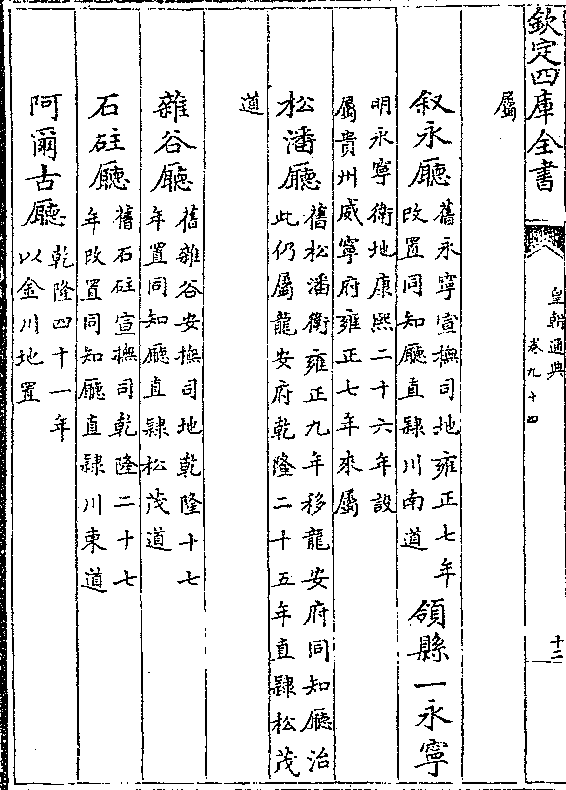 欽定四庫全書
皇朝通典
卷九十四
十二
屬
叙永廳舊永寧宣撫司地雍正七年
改置同知廳直隸川南道領縣一永寧
明永寧衛地康熙二十六年設
屬貴州威寧府雍正七年來屬
松潘廳舊松潘衛雍正九年移龍安府同知廳治
此仍屬龍安府乾隆二十五年直隸松茂
道
雜谷廳舊雜谷安撫司地乾隆十七
年置同知廳直隸松茂道
石砫廳舊石砫宣撫司乾隆二十七
年改置同知廳直隸川東道
阿爾古廳乾隆四十一年
以金川地置